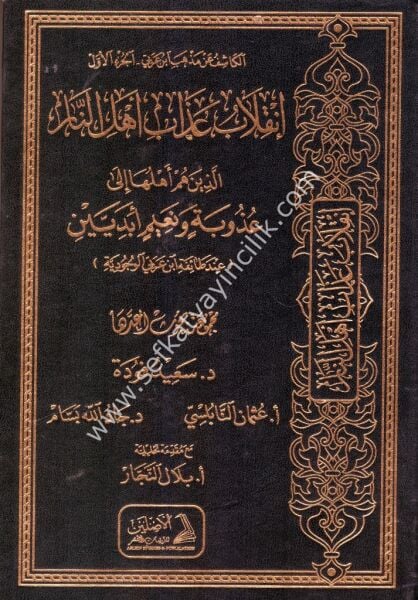 الكاشف عن مذهب ابن عربي - الجزء الأول
انقلاب عذاب أهل النار
الذين هم أهلها إلى
عذوبة ونعيم أبديين
(عند طائفة ابن عربي الوجودية)
د. سعيد فودة
أ. عثمان النابلسي
د. جاد الله بسام
مع مقدمة تحليلية
أ. بلال النجار
الأصلين
للدراسات والنشر
ASLEIN STUDIES & PUBLICATION
انقلاب عذاب أهل النار
www.sefkatyayincilik.com